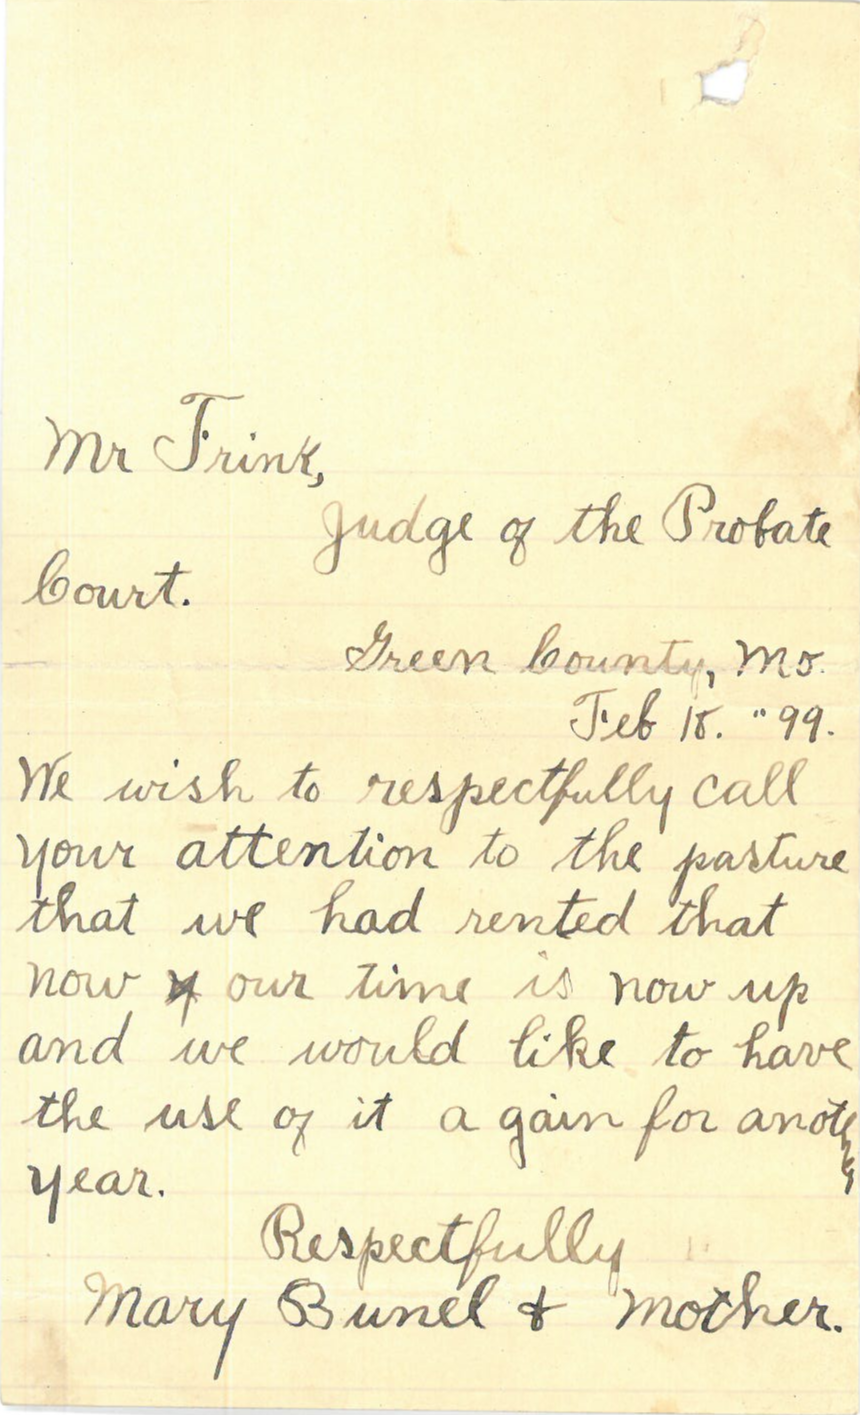 Mr Frink,
Judge of the Probate
Court.
Green County, Mo.
Feb 18. "99.
We wish to respectfully call
your attention to the pasture
that we had rented that
now our time is now up
and we would like to have
the use of it a gain for another
year.
Respectfully
Mary Bunel & Mother.